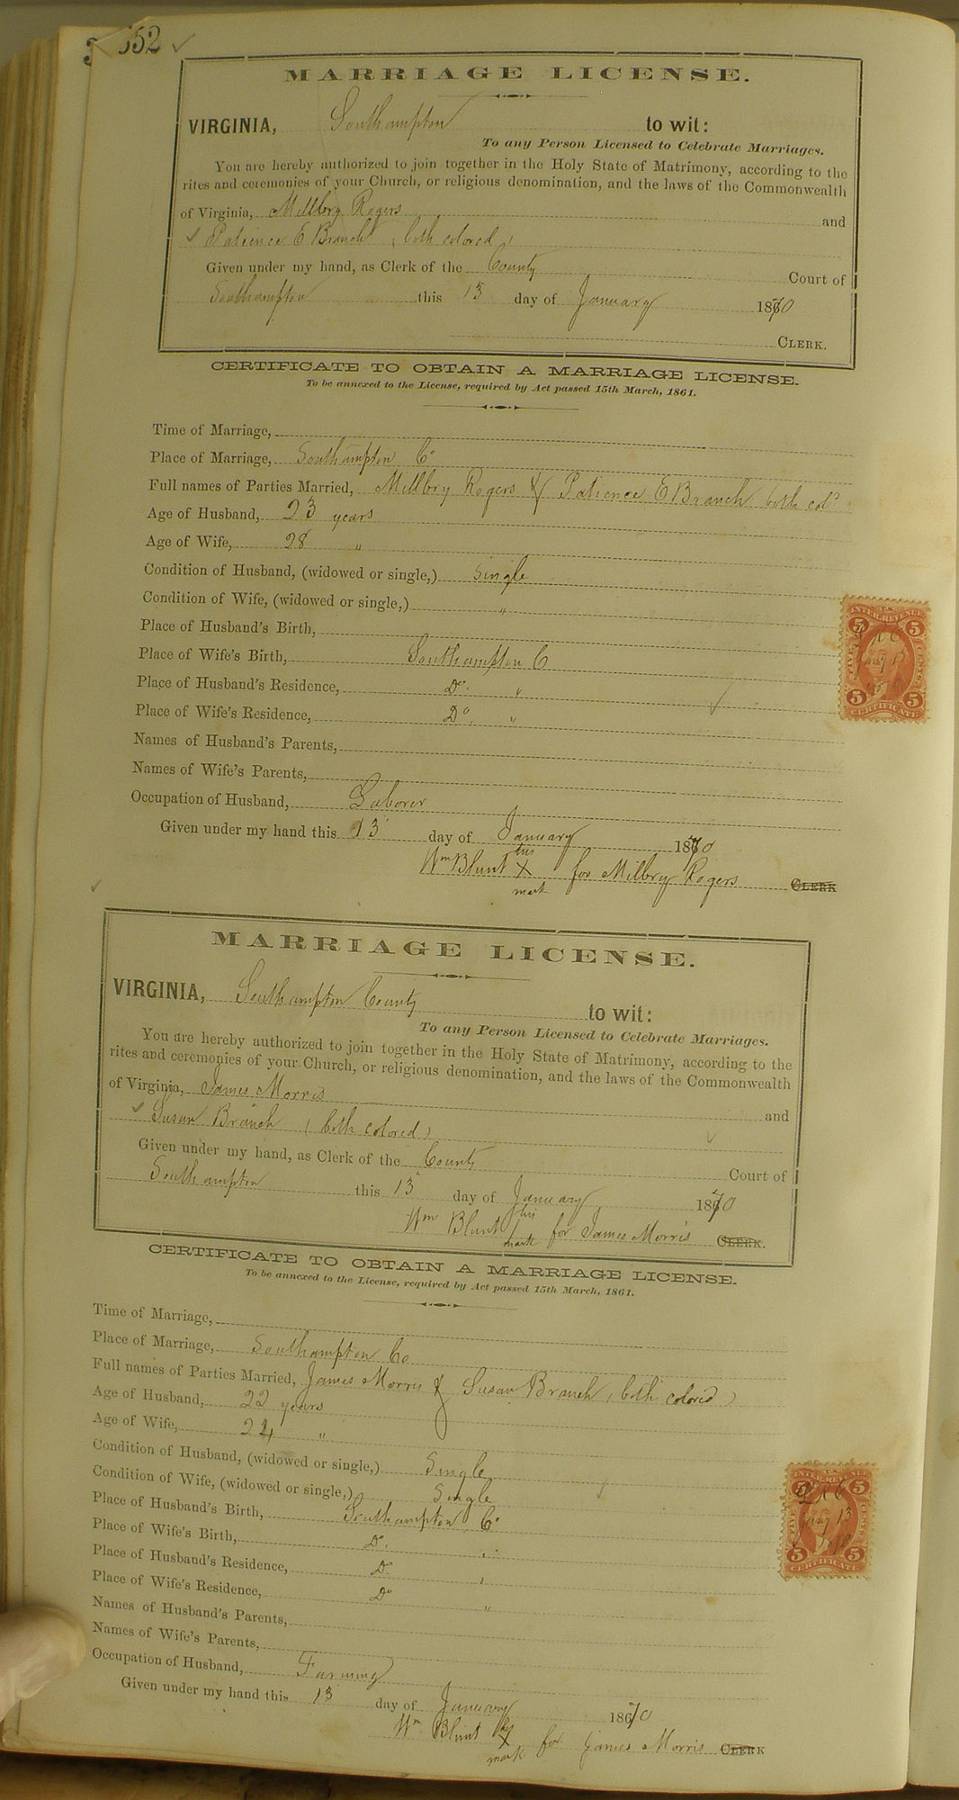 552 ✓
MARRIAGE LICENSE.
VIRGINIA, Southampton to wit:
To any Person Licensed to Celebrate Marriages.
You are hereby authorized to join together in the Holy State of Matrimony, according to the
rites and ceremonies of your Church, or religious denomination, and the laws of the Commonwealth
of Virginia, Millbry Rogers and
✓ Patience E Branch (both colored)
Given under my hand, as Clerk of the County Court of
Southampton this 13 day of January 1870
CLERK.
CERTIFICATE TO OBTAIN A MARRIAGE LICENSE.
To be annexed to the License, required by Act passed 15th March, 1861.
Time of Marriage,
Place of Marriage, Southampton Co
Full names of Parties Married, Millbry Rogers & Patience E Branch both cold
Age of Husband, 23 years
Age of Wife, 28 "
Condition of Husband, (widowed or single,) Single
Condition of Wife, (widowed or single,) "
Place of Husband's Birth,
Place of Wife's Birth, Southampton C
Place of Husband's Residence, Do. "
Place of Wife's Residence, Do "
Names of Husband's Parents,
Names of Wife's Parents,
Occupation of Husband, Laborer
Given under my hand this 13 day of January 1870
his
Wm Blunt X for Millbry Rogers CLERK
mark
INTER. REVENUE
5 5
FIVE CENTS
5 5
CERTIFICATE
MARRIAGE LICENSE.
VIRGINIA, Southampton County to wit:
To any Person Licensed to Celebrate Marriages.
You are hereby authorized to join together in the Holy State of Matrimony, according to the
rites and ceremonies of your Church, or religious denomination, and the laws of the Commonwealth
of Virginia, James Morris and
✓ Susan Branch (both colored)
Given under my hand, as Clerk of the County Court of
Southampton this 13 day of January 1870
his
Wm Blunt for James Morris CLERK.
mark
CERTIFICATE TO OBTAIN A MARRIAGE LICENSE.
To be annexed to the License, required by Act passed 15th March, 1861.
Time of Marriage,
Place of Marriage, Southampton Co
Full names of Parties Married, James Morris & Susan Branch (both colored)
Age of Husband, 22 years
Age of Wife, 24 "
Condition of Husband, (widowed or single,) Single
Condition of Wife, (widowed or single,) Single
Place of Husband's Birth, Southampton Co
Place of Wife's Birth, Do "
Place of Husband's Residence, Do "
Place of Wife's Residence, Do "
Names of Husband's Parents,
Names of Wife's Parents,
Occupation of Husband, Farming
Given under my hand this 13 day of January 1870
Wm Blunt X for James Morris CLERK
mark
INTER. REVENUE
5 5
FIVE CENTS
13
5 5
CERTIFICATE